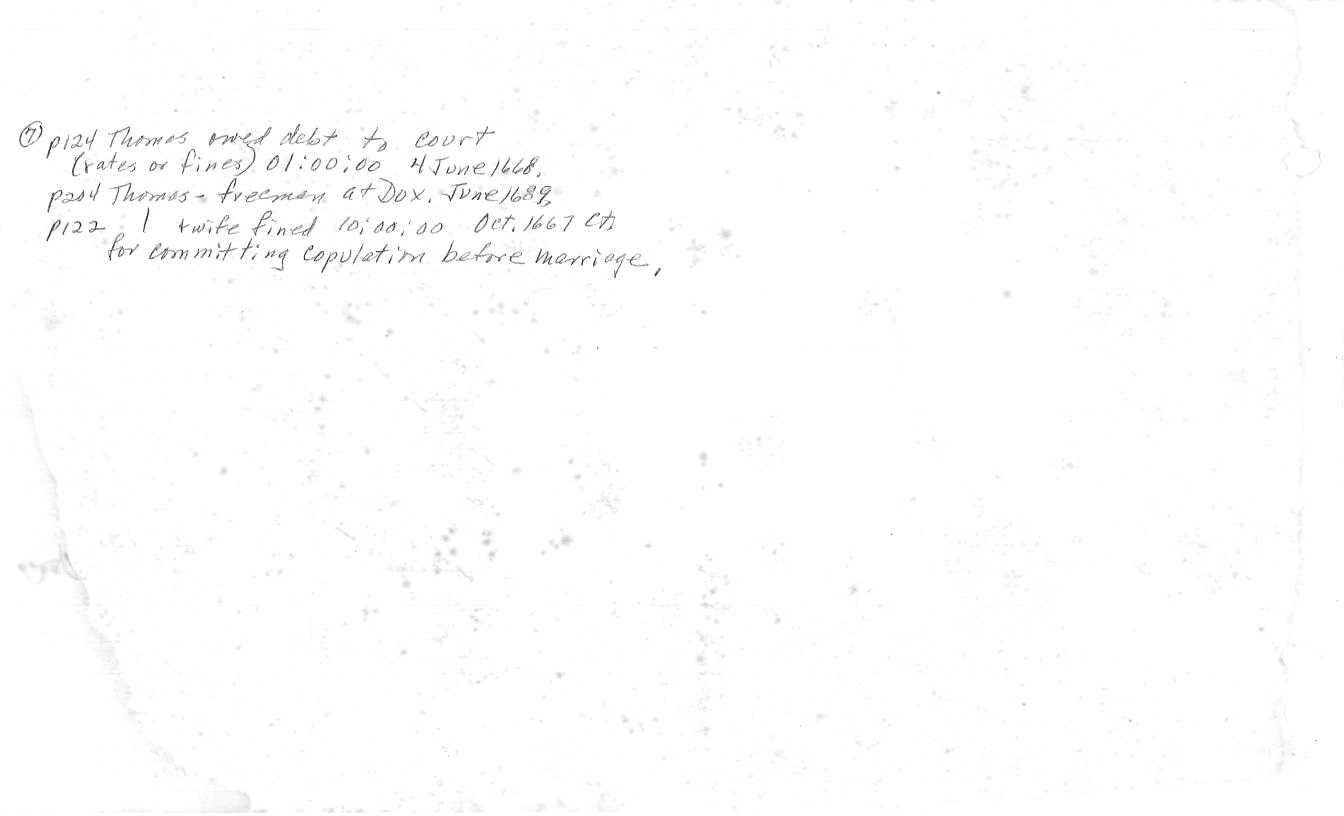 ⑦ p124 Thomas owed debt to court
(rates or fines) 01:00:00 4 June 1668.
p204 Thomas - freeman at Dux. June 1689
p122 | + wife fined 10:00:00 Oct. 1667 Ct.
for committing copulation before marriage.